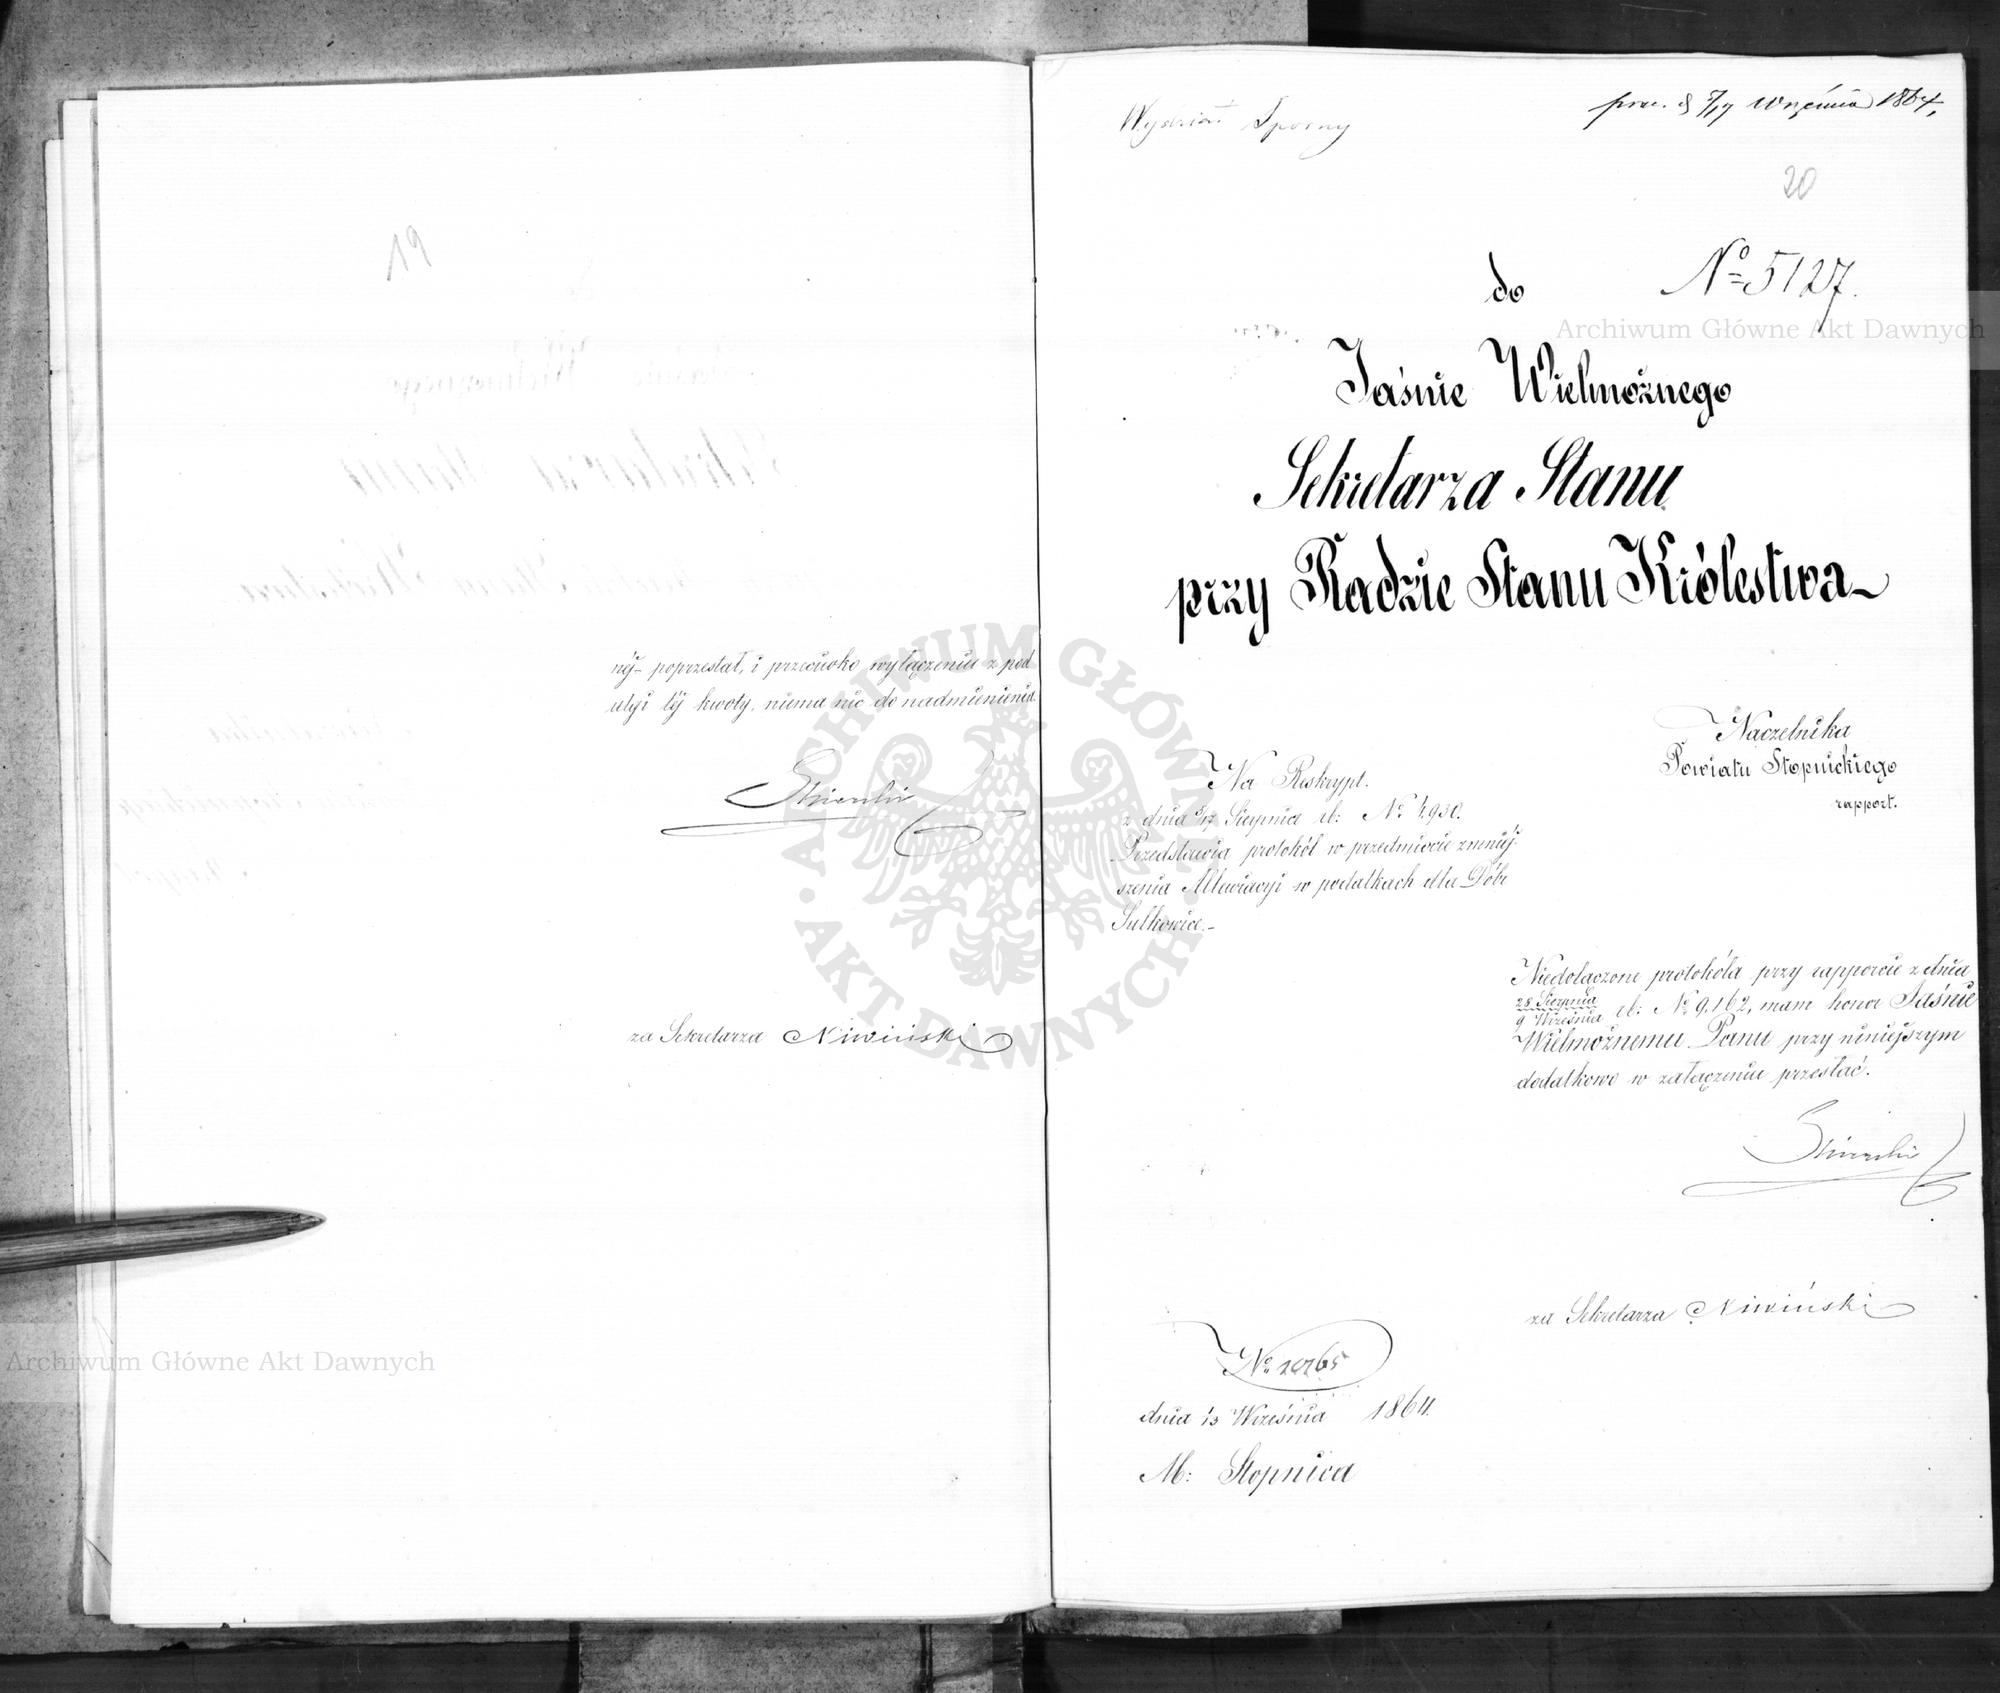 19
néj poprzestał, i przeciwko wyłączeniu z pod
ulgi téj kwoty, niema nic do nadmienienia.
za Sekretarza Niwiński
Wydział Sporny
prez. d 5/17 Września 1864,
20
do
No 5127.
Jaśnie Wielmożnego
Sekretarza Stanu
przy Radzie Stanu Królestwa
Naczelnika
Powiatu Stopnickiego
rapport.
Na Reskrypt.
z dnia 5/17 Sierpnia rb: No 4,930.
Przedstawia protokół w przedmiocie zmniéj-
szenia Allewiacyi w podatkach dla Dóbr
Sułkowice.-
Niedołączone protokóła przy rapporcie z dnia
28 Sierpnia
9 Września rb: No 9,162, mam honor Jaśnie
Wielmożnemu Panu przy niniejszym
dodatkowo w załączeniu przesłać.
za Sekretarza Niwiński
No 10765
dnia 13 Września 1864.
M: Stopnica
ARCHIWUM GŁÓWNE AKT DAWNYCH
Archiwum Główne Akt Dawnych
Archiwum Główne Akt Dawnych